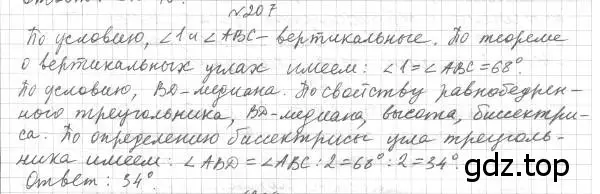 №207
По условию, ∠1 и ∠ABC - вертикальные. По теореме
о вертикальных углах имеем: ∠1=∠ABC=68°.
По условию, BD-медиана. По свойству равнобедрен-
ного треугольника, BD-медиана, высота, биссектри-
са. По определению биссектрисы угла треуголь-
ника имеем: ∠ABD=∠ABC:2=68°:2=34°.
Ответ: 34°.
gdz.top